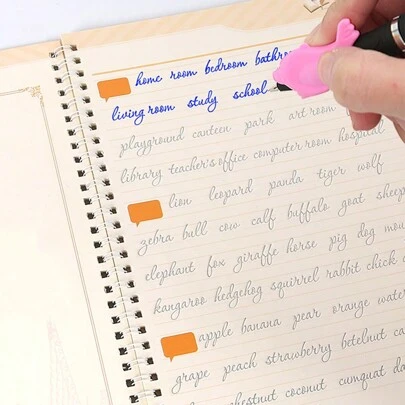 home room bedroom
living room study school
playground canteen park art room
library teacher's office computer room hospital
lion leopard panda tiger wolf
zebra bull cow calf buffalo goat sheep
elephant fox giraffe horse pig dog
kangaroo hedgehog squirrel rabbit chick
apple banana pear orange
grape peach strawberry betelnut
chestnut coconut cumquat